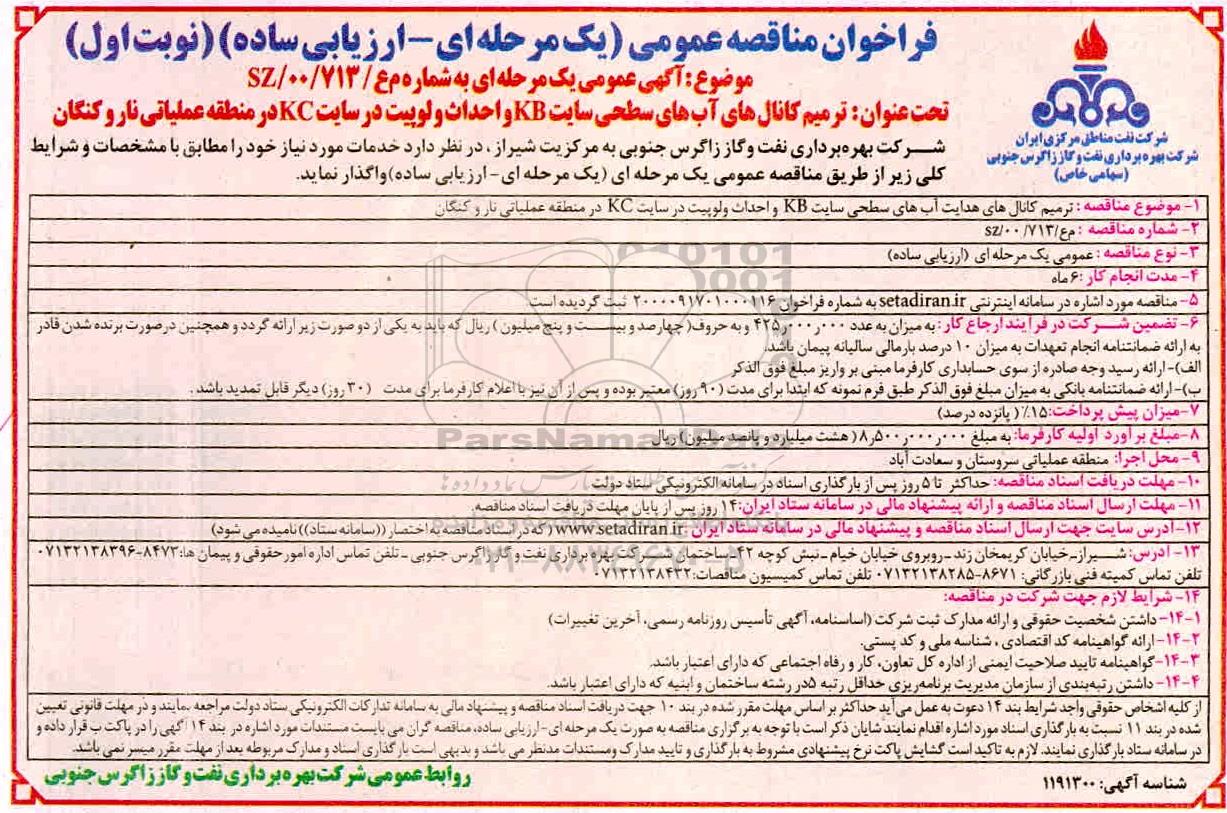 فراخوان مناقصه عمومی (یک مرحله‌ای-ارزیابی ساده) (نوبت اول)
موضوع: آگهی عمومی یک مرحله‌ای به شماره م‌ع/ SZ/۰۰/۷۱۳
تحت عنوان: ترمیم کانال های آب های سطحی سایت KB و احداث ولوپیت در سایت KC در منطقه عملیاتی نار و کنگان
شرکت نفت مناطق مرکزی ایران
شرکت بهره‌برداری نفت و گاز زاگرس جنوبی
(سهامی خاص)
شرکت بهره‌برداری نفت وگاز زاگرس جنوبی به مرکزیت شیراز، در نظر دارد خدمات مورد نیاز خود را مطابق با مشخصات و شرایط
کلی زیر از طریق مناقصه عمومی یک مرحله ای (یک مرحله ای- ارزیابی ساده) واگذار نماید.
۱- موضوع مناقصه : ترمیم کانال های هدایت آب های سطحی سایت KB و احداث ولوپیت در سایت KC در منطقه عملیاتی نار و کنگان
۲- شماره مناقصه : م‌ع/ sz/۰۰/۷۱۳
۳- نوع مناقصه : عمومی یک مرحله ای (ارزیابی ساده)
۴- مدت انجام کار : ۶ ماه
۵- مناقصه مورد اشاره در سامانه اینترنتی setadiran.ir به شماره فراخوان ۲۰۰۰۰۹۱۷۰۱۰۰۰۱۱۶ ثبت گردیده است
۶- تضمین شرکت در فرایند ارجاع کار : به میزان به عدد ۴۲۵ر۰۰۰ر۰۰۰ و به حروف( چهارصد و بیست و پنج میلیون ) ریال که باید به یکی از دو صورت زیر ارائه گردد و همچنین درصورت برنده شدن قادر
به ارائه ضمانتنامه انجام تعهدات به میزان ۱۰ درصد بارمالی سالیانه پیمان باشد.
الف)- ارائه رسید وجه صادره از سوی حسابداری کارفرما مبنی بر واریز مبلغ فوق الذکر
ب)- ارائه ضمانتنامه بانکی به میزان مبلغ فوق الذکر طبق فرم نمونه که ابتدا برای مدت (۹۰ روز) معتبر بوده و پس از آن نیز با اعلام کارفرما برای مدت (۳۰ روز) دیگر قابل تمدید باشد .
۷-میزان پیش پرداخت: ۱۵٪ ( پانزده درصد)
۸-مبلغ برآورد اولیه کارفرما: به مبلغ ۸ر۵۰۰ر۰۰۰ر۰۰۰ ( هشت میلیارد و پانصد میلیون) ریال
۹- محل اجرا: منطقه عملیاتی سروستان و سعادت آباد
۱۰- مهلت دریافت اسناد مناقصه: حداکثر تا ۵ روز پس از بارگذاری اسناد در سامانه الکترونیکی ستاد دولت
۱۱- مهلت ارسال اسناد مناقصه و ارائه پیشنهاد مالی در سامانه ستاد ایران: ۱۴ روز پس از پایان مهلت دریافت اسناد مناقصه.
۱۲- آدرس سایت جهت ارسال اسناد مناقصه و پیشنهاد مالی در سامانه ستاد ایران : www.setadiran.ir (که در اسناد مناقصه به اختصار ((سامانه ستاد)) نامیده می شود)
۱۳- آدرس: شیراز-خیابان کریمخان زند-روبروی خیابان خیام-نبش کوچه ۴۲-ساختمان شرکت بهره برداری نفت و گاز زاگرس جنوبی - تلفن تماس اداره امور حقوقی و پیمان ها: ۸۴۷۳-۰۷۱۳۲۱۳۸۳۹۶
تلفن تماس کمیته فنی بازرگانی: ۸۶۷۱-۰۷۱۳۲۱۳۸۲۸۵ تلفن تماس کمیسیون مناقصات: ۰۷۱۳۲۱۳۸۴۳۲
۱۴- شرایط لازم جهت شرکت در مناقصه:
۱۴-۱- داشتن شخصیت حقوقی و ارائه مدارک ثبت شرکت (اساسنامه، آگهی تأسیس روزنامه رسمی، آخرین تغییرات)
۱۴-۲- ارائه گواهینامه کد اقتصادی ، شناسه ملی و کد پستی.
۱۴-۳-گواهینامه تایید صلاحیت ایمنی از اداره کل تعاون، کار و رفاه اجتماعی که دارای اعتبار باشد.
۱۴-۴- داشتن رتبه‌بندی از سازمان مدیریت برنامه‌ریزی حداقل رتبه ۵در رشته ساختمان و ابنیه که دارای اعتبار باشد.
از کلیه اشخاص حقوقی واجد شرایط بند ۱۴ دعوت به عمل می آید حداکثر بر اساس مهلت مقرر شده در بند ۱۰ جهت دریافت اسناد مناقصه و پیشنهاد مالی به سامانه تدارکات الکترونیکی ستاد دولت مراجعه نمایند و در مهلت قانونی تعیین
شده در بند ۱۱ نسبت به بارگذاری اسناد مورد اشاره اقدام نمایند شایان ذکر است با توجه به برگزاری مناقصه به صورت یک مرحله ای-ارزیابی ساده، مناقصه گران می بایست مستندات مورد اشاره در بند ۱۴ آگهی را در پاکت ب قرار داده و
در سامانه ستاد بارگذاری نمایند. لازم به تاکید است گشایش پاکت نرخ پیشنهادی مشروط به بارگذاری و تایید مدارک ومستندات مدنظر می باشد و بدیهی است بارگذاری اسناد و مدارک مربوطه بعد از مهلت مقرر میسر نمی باشد.
شناسه آگهی: ۱۱۹۱۳۰۰
روابط عمومی شرکت بهره برداری نفت و گاز زاگرس جنوبی
ParsNamadData
۰۲۱-۸۸۳۴۹۶۷۰-۵